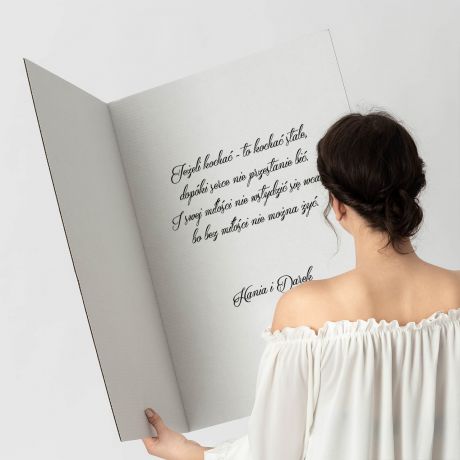 Jeżeli kochać - to kochać stale,
dopóki serce nie przestanie bić.
I swej miłości nie wstydzić się
bo bez miłości nie można żyć.
Hania i Darek